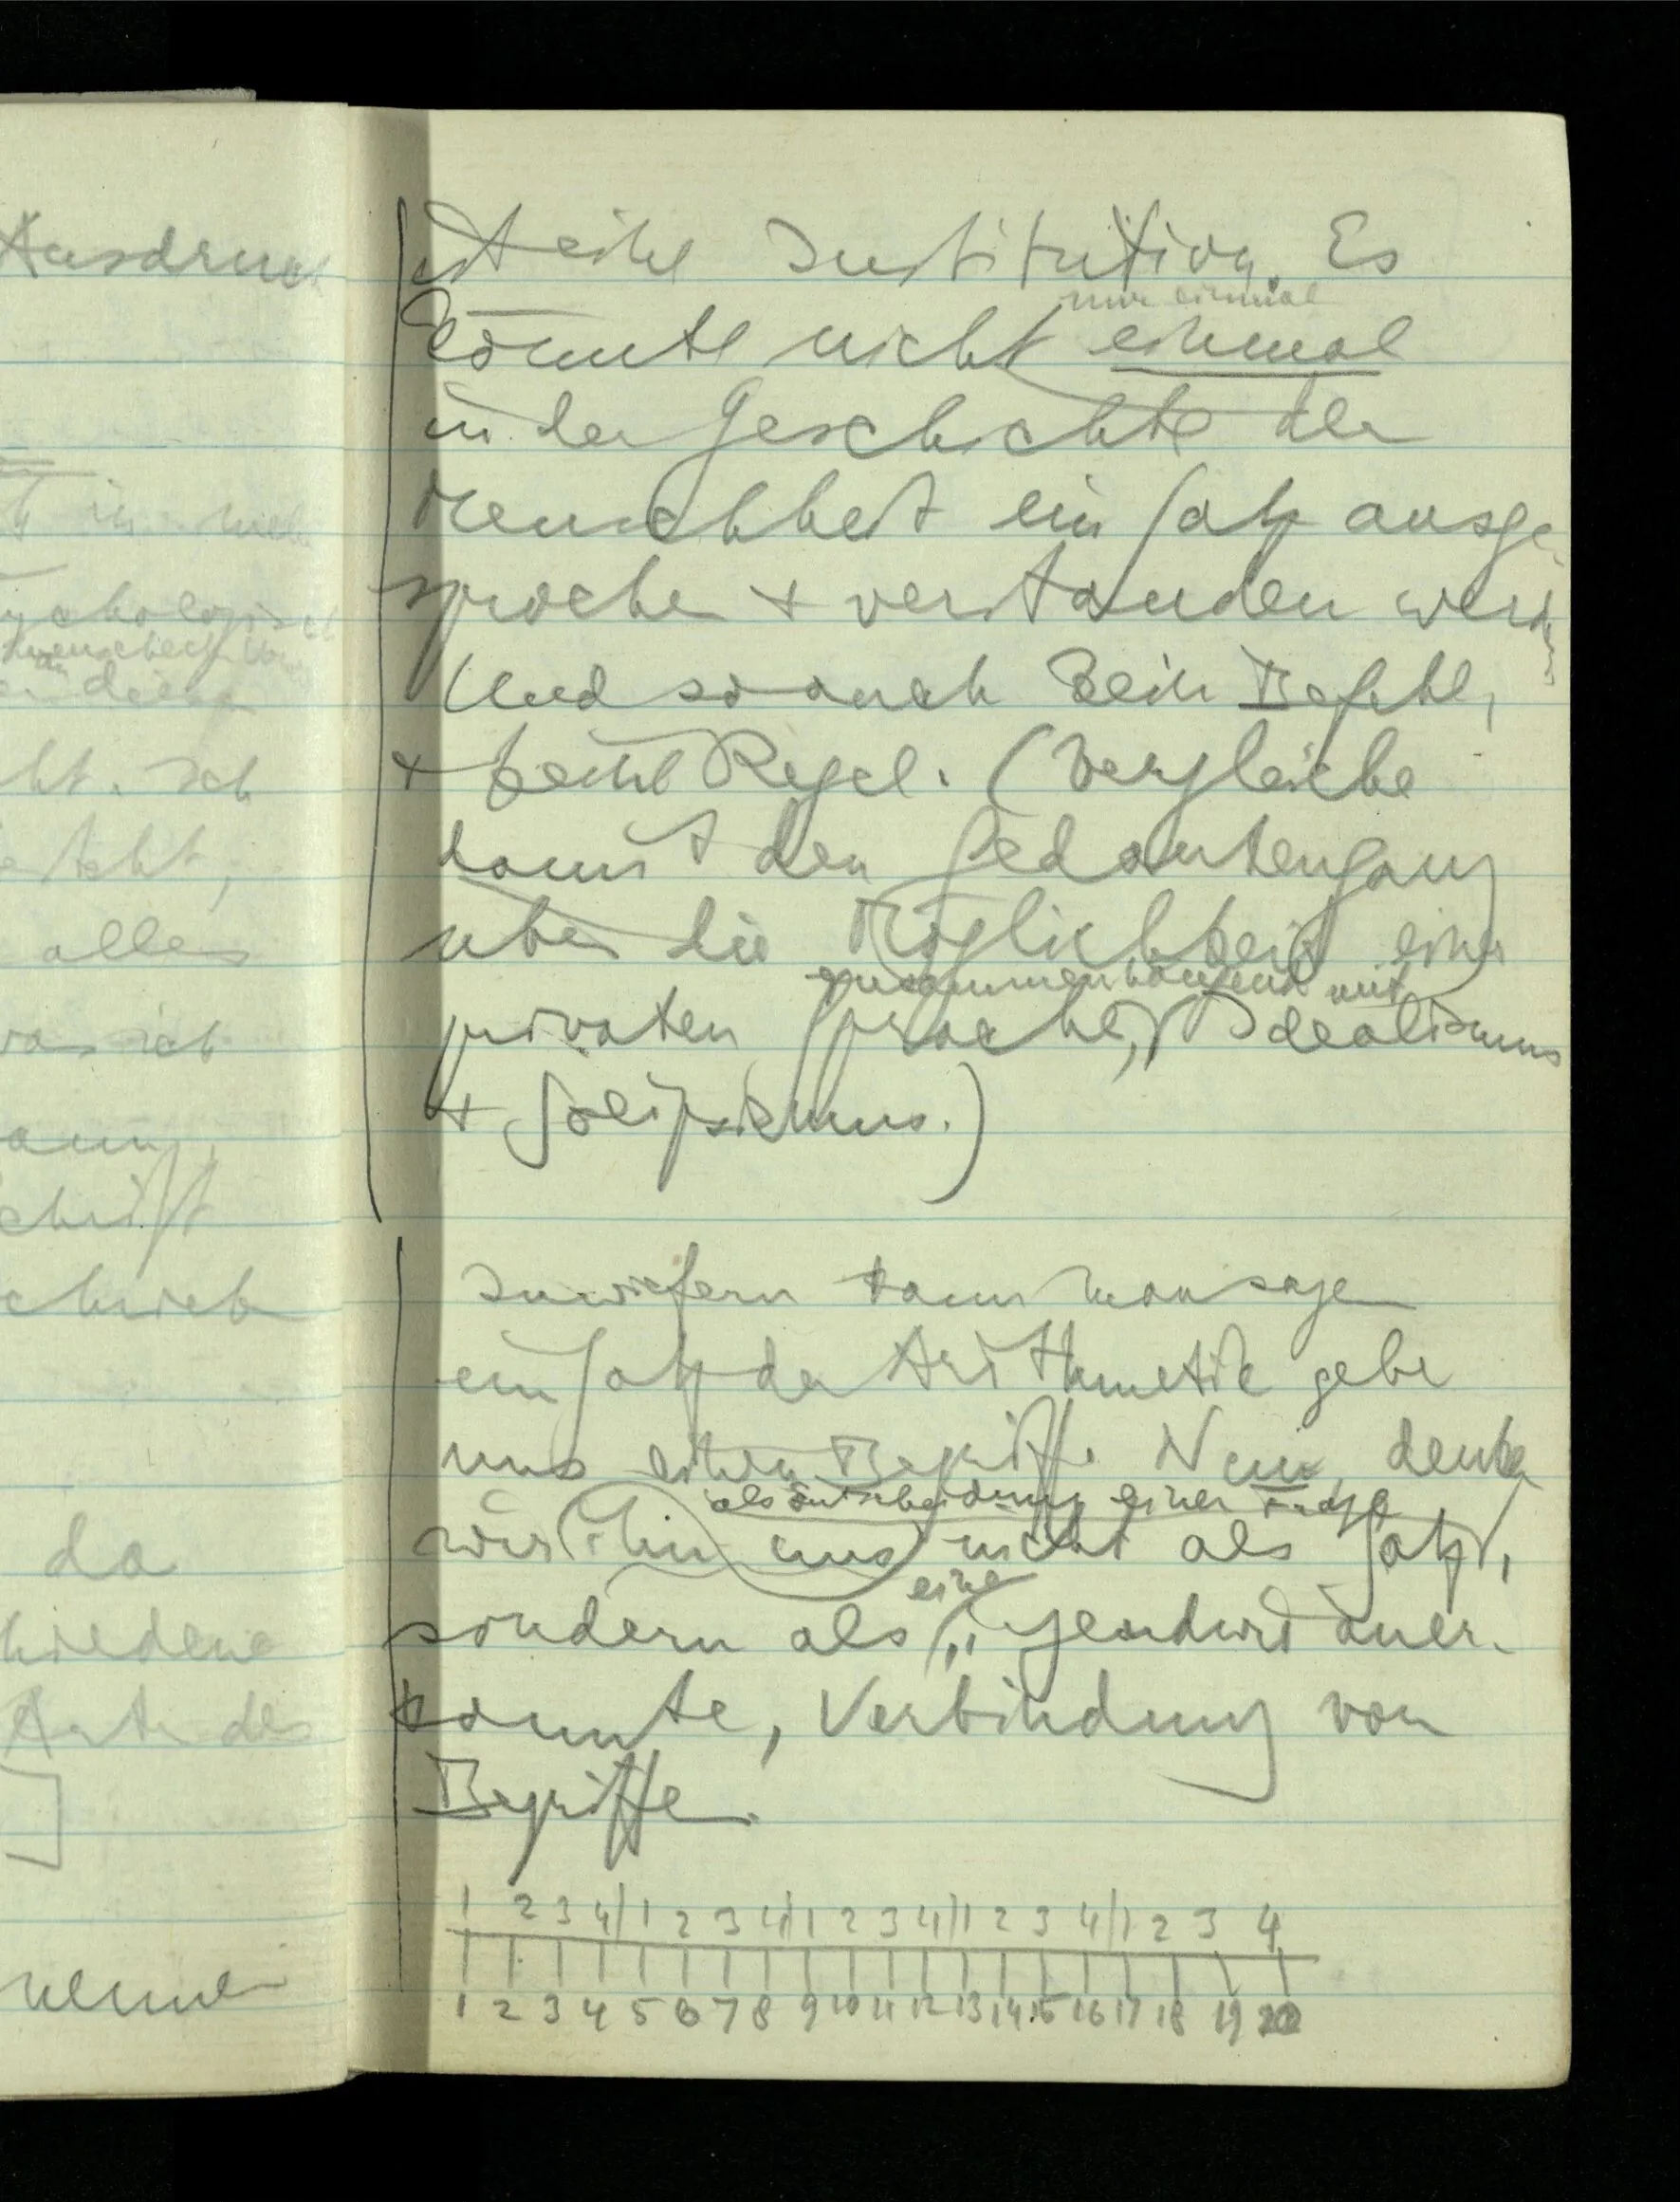 Ausdruck
alles
da
ist eine Institution. Es
nur einmal
könnte nicht einmal
in der Geschichte der
Menschheit ein Satz ausge-
sprochen + verstanden werden
Und so auch kein Befehl,
+ keine Regel. (Vergleiche
damit den Gedankengang
über die Möglichkeit einer
zusammenhängend mit
privaten Sprache, Idealismus
+ Solipsismus.)
Inwiefern kann man sagen
ein Satz der Arithmetik gebe
uns einen Begriff. Nun, denken
als Entscheidung einer Frage
wir ihn uns nicht als Satz,
eine
sondern als, irgendwie aner-
kannte, Verbindung von
Begriffen.
1 2 3 4 | 1 2 3 4 | 1 2 3 4 | 1 2 3 4 | 1 2 3 4
1 2 3 4 5 6 7 8 9 10 11 12 13 14 15 16 17 18 19 20